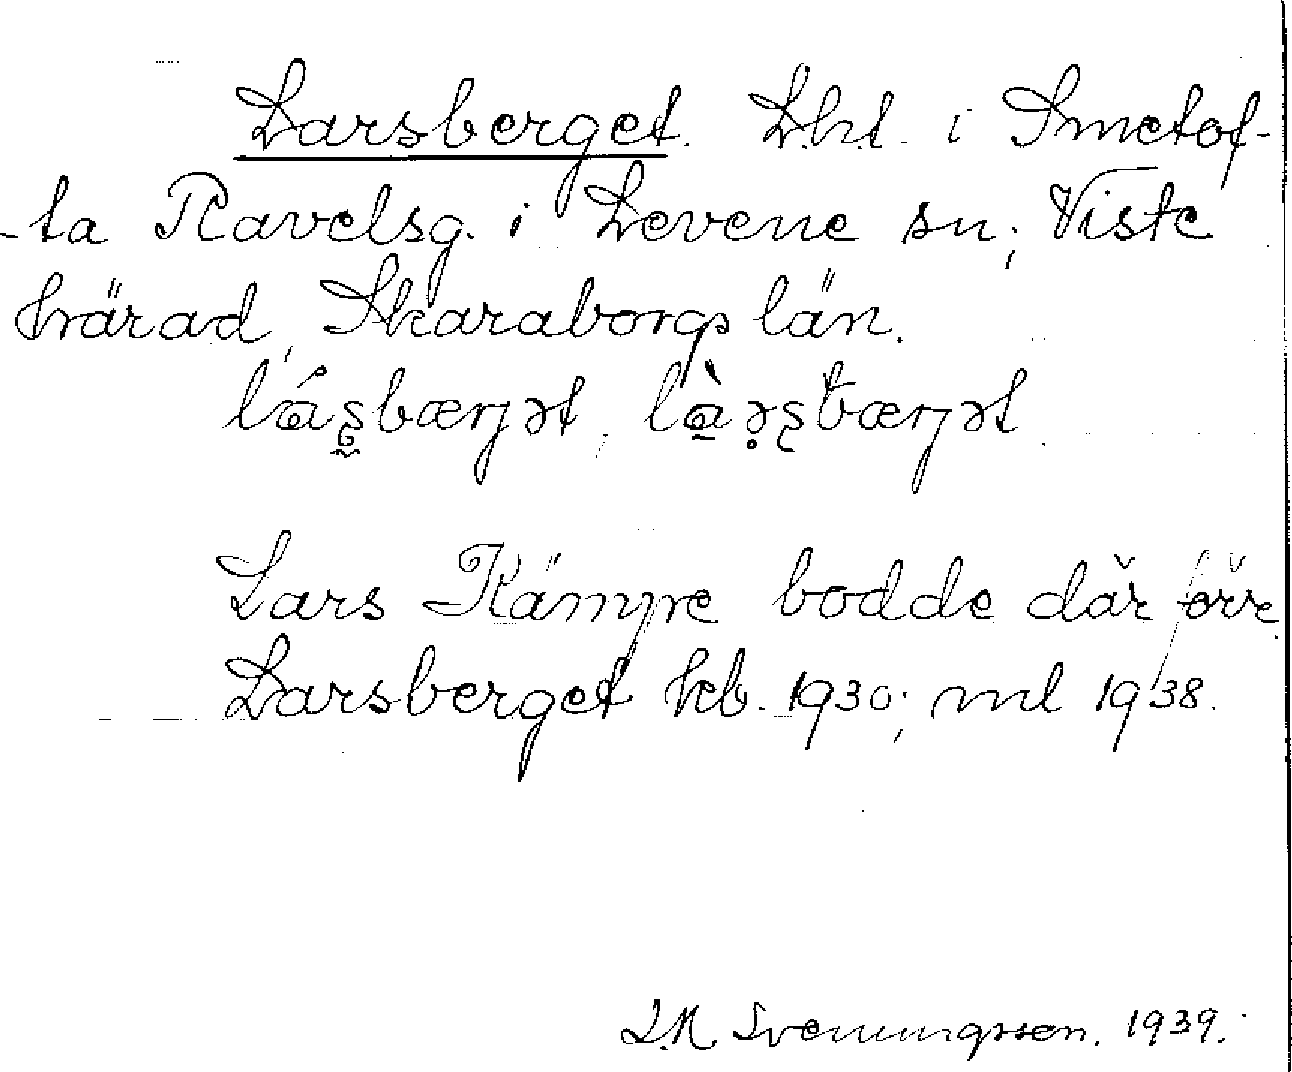 Larsberget. L.h.t. i Smetof-
-ta Ravelsg. i Levene sn; Viste
härad, Skaraborgs län.
lás̬bærjət, là̱ə̣ʂbærjət.
Lars Kämpe bodde där förr.
Larsberget kb. 1930; ml 1938.
Svenungsson. 1939.